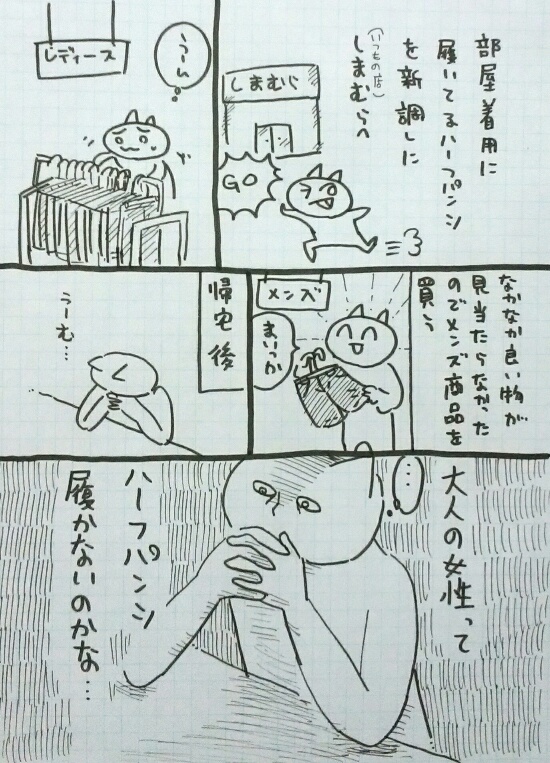 部屋着用に
履いてるハーフパンツ
を新調しに
(いつもの店)
しまむらへ
しまむら
GO
レディース
うーん
なかなか良い物が
見当たらなかった
のでメンズ商品を
買う
メンズ
まいっか
帰宅後
うーむ…
…
大人の女性って
ハーフパンツ
履かないのかな…